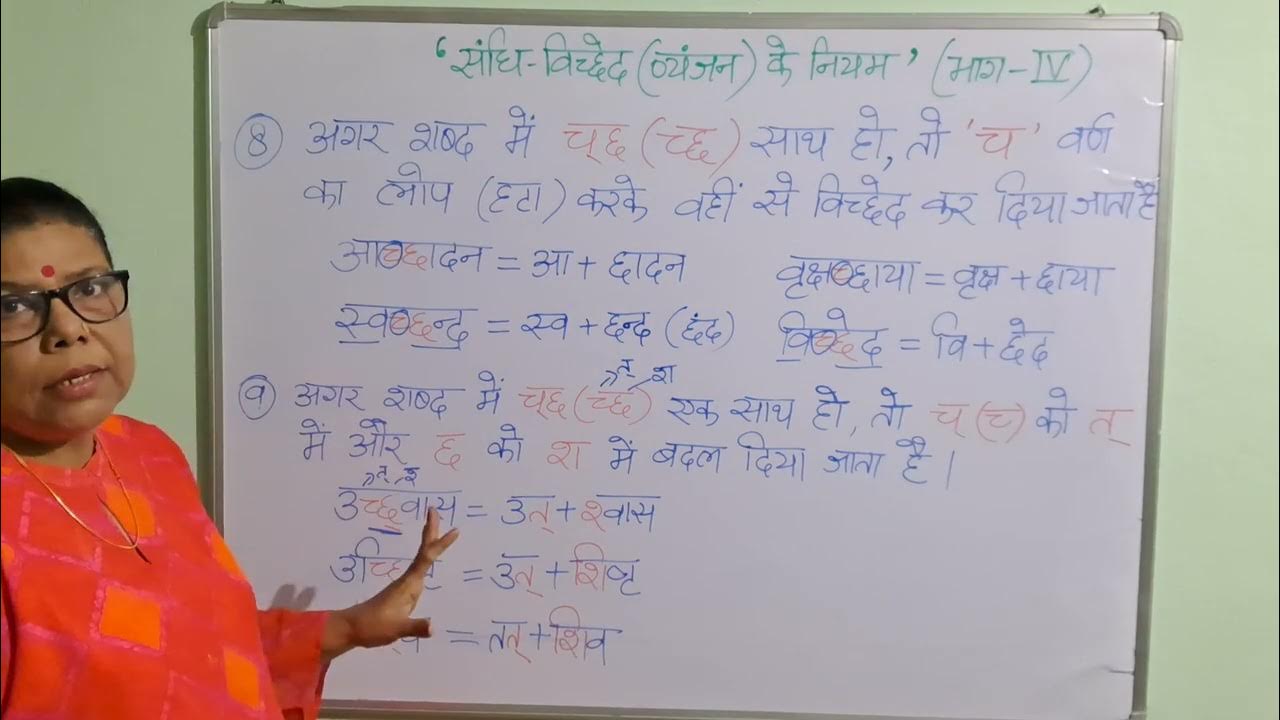 'संधि-विच्छेद (व्यंजन) के नियम' (भाग-IV)
8 अगर शब्द में च्छ (च्छ) साथ हो, तो 'च' वर्ण
का लोप (हटा) करके वहीं से विच्छेद कर दिया जाता है
आच्छादन = आ + छादन वृक्षच्छाया = वृक्ष + छाया
स्वच्छन्द = स्व + छन्द (छंद) विच्छेद = वि + छेद
त् श
9 अगर शब्द में च्छ (च्छ) एक साथ हो, तो च् (च) को त्
में और छ को श में बदल दिया जाता है।
त् श
उच्छ्वास = उत् + श्वास
= उत् + शिष्ट
= तत् + शिव